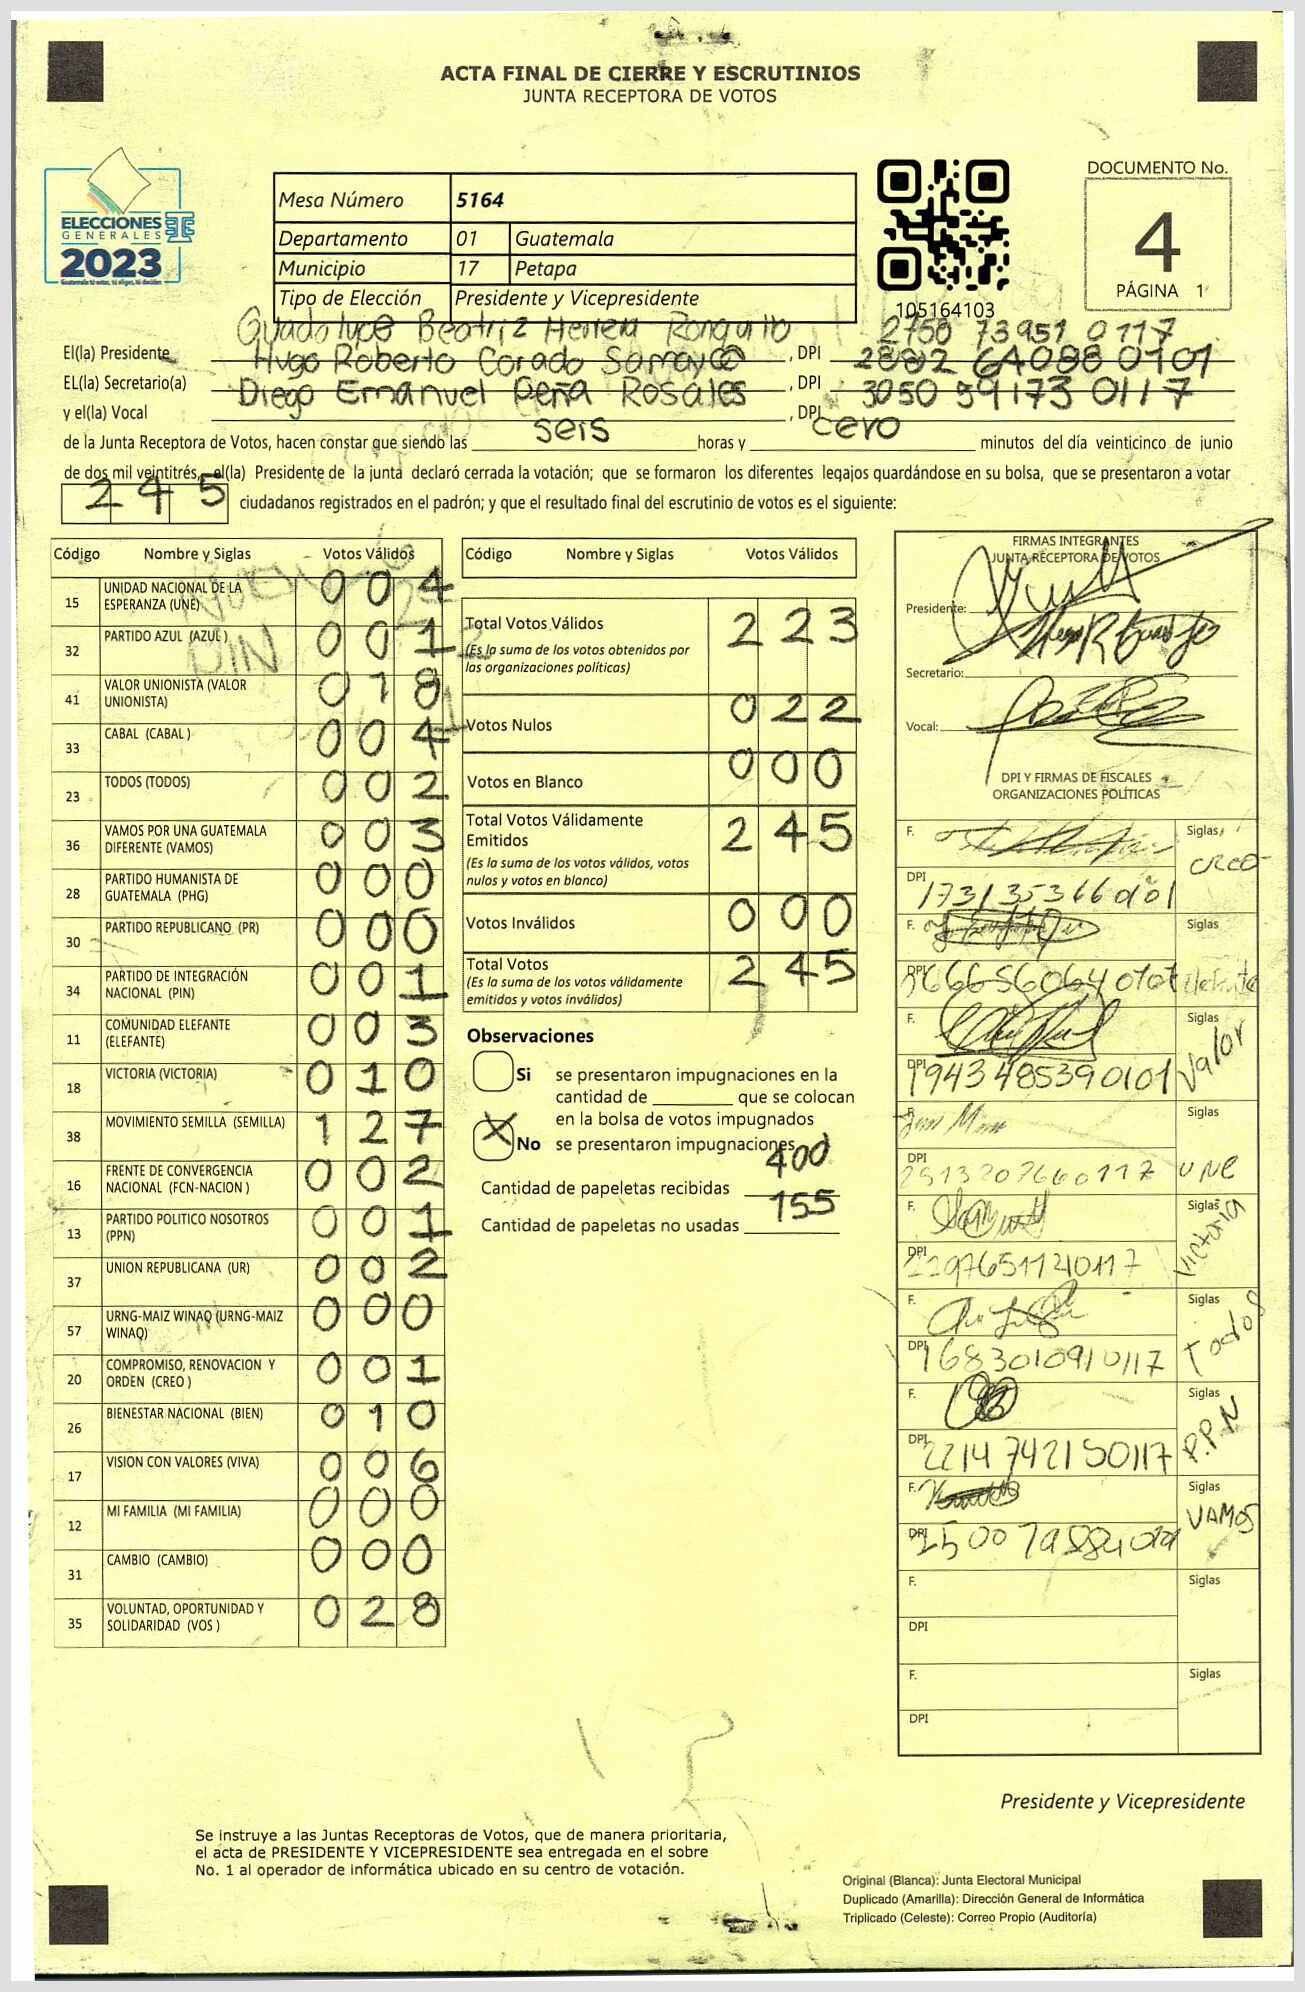 ACTA FINAL DE CIERRE Y ESCRUTINIOS
JUNTA RECEPTORA DE VOTOS
ELECCIONES
GENERALES
2023
Guatemala tú votas, tú eliges, tú decides
Mesa Número 5164
Departamento 01 Guatemala
Municipio 17 Petapa
Tipo de Elección Presidente y Vicepresidente
105164103
DOCUMENTO No.
4
PÁGINA 1
Guadalupe Beatriz Herrera Ronquillo 2750 73951 0117
El(la) Presidente Hugo Roberto Corado Samayoa, DPI 2882 64088 0101
EL(la) Secretario(a) Diego Emanuel Peña Rosales, DPI 3050 59173 0117
y el(la) Vocal , DPI
de la Junta Receptora de Votos, hacen constar que siendo las seis horas y cero minutos del día veinticinco de junio
de dos mil veintitrés, el(la) Presidente de la junta declaró cerrada la votación; que se formaron los diferentes legajos guardándose en su bolsa, que se presentaron a votar
245 ciudadanos registrados en el padrón; y que el resultado final del escrutinio de votos es el siguiente:
Código Nombre y Siglas Votos Válidos
15 UNIDAD NACIONAL DE LA ESPERANZA (UNE) 004
32 PARTIDO AZUL (AZUL) 001
41 VALOR UNIONISTA (VALOR UNIONISTA) 018
33 CABAL (CABAL) 004
23 TODOS (TODOS) 002
36 VAMOS POR UNA GUATEMALA DIFERENTE (VAMOS) 003
28 PARTIDO HUMANISTA DE GUATEMALA (PHG) 000
30 PARTIDO REPUBLICANO (PR) 000
34 PARTIDO DE INTEGRACIÓN NACIONAL (PIN) 001
11 COMUNIDAD ELEFANTE (ELEFANTE) 003
18 VICTORIA (VICTORIA) 010
38 MOVIMIENTO SEMILLA (SEMILLA) 127
16 FRENTE DE CONVERGENCIA NACIONAL (FCN-NACION) 002
13 PARTIDO POLITICO NOSOTROS (PPN) 001
37 UNION REPUBLICANA (UR) 002
57 URNG-MAIZ WINAQ (URNG-MAIZ WINAQ) 000
20 COMPROMISO, RENOVACION Y ORDEN (CREO) 001
26 BIENESTAR NACIONAL (BIEN) 010
17 VISION CON VALORES (VIVA) 006
12 MI FAMILIA (MI FAMILIA) 000
31 CAMBIO (CAMBIO) 000
35 VOLUNTAD, OPORTUNIDAD Y SOLIDARIDAD (VOS) 028
Código Nombre y Siglas Votos Válidos
Total Votos Válidos 223
(Es la suma de los votos obtenidos por
las organizaciones políticas)
Votos Nulos 022
Votos en Blanco 000
Total Votos Válidamente
Emitidos 245
(Es la suma de los votos válidos, votos
nulos y votos en blanco)
Votos Inválidos 000
Total Votos 245
(Es la suma de los votos válidamente
emitidos y votos inválidos)
Observaciones
Si se presentaron impugnaciones en la
cantidad de ________ que se colocan
en la bolsa de votos impugnados
X No se presentaron impugnaciones
Cantidad de papeletas recibidas 400
Cantidad de papeletas no usadas 155
FIRMAS INTEGRANTES
JUNTA RECEPTORA DE VOTOS
Presidente:
Secretario:
Vocal:
DPI Y FIRMAS DE FISCALES
ORGANIZACIONES POLÍTICAS
F. Siglas CREO
DPI 1731353660101
F. Siglas
DPI
F. Siglas Valor
DPI 1943485390101
F. Siglas UNE
DPI 2513207660117
F. Siglas Victoria
DPI 2297651120117
F. Siglas Todos
DPI 1683010910117
F. Siglas P.P.N
DPI 2214742150117
F. Siglas VAMOS
DPI
F. Siglas
DPI
F. Siglas
DPI
Presidente y Vicepresidente
Se instruye a las Juntas Receptoras de Votos, que de manera prioritaria,
el acta de PRESIDENTE Y VICEPRESIDENTE sea entregada en el sobre
No. 1 al operador de informática ubicado en su centro de votación.
Original (Blanca): Junta Electoral Municipal
Duplicado (Amarilla): Dirección General de Informática
Triplicado (Celeste): Correo Propio (Auditoría)